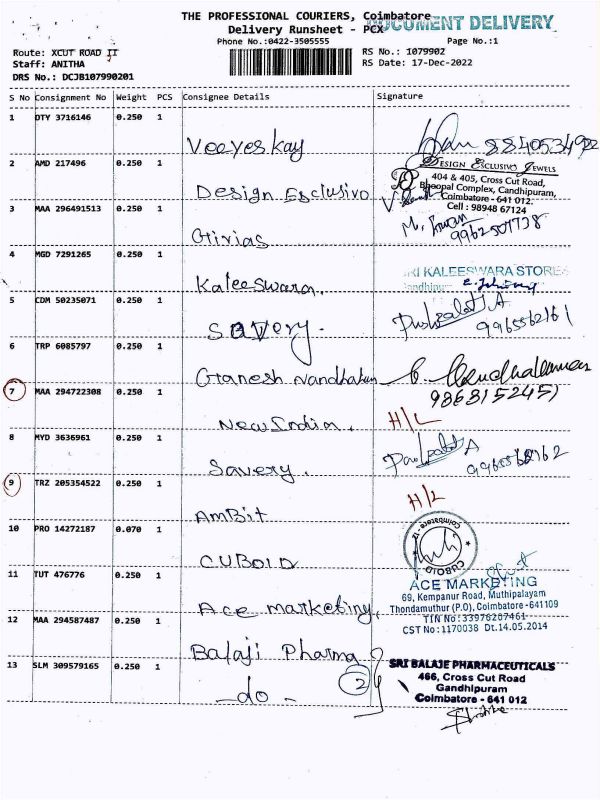 THE PROFESSIONAL COURIERS, Coimbatore
DOCUMENT DELIVERY
Delivery Runsheet - PCX
Phone No.:0422-3505555
Page No.:1
Route: XCUT ROAD II
RS No.: 1079902
Staff: ANITHA
RS Date: 17-Dec-2022
DRS No.: DCJB107990201
S No Consignment No Weight PCS Consignee Details Signature
1 DTY 3716146 0.250 1
Veeyes Kay
2 AMD 217496 0.250 1
DESIGN EXCLUSIVO JEWELS
404 & 405, Cross Cut Road,
Bhoopal Complex, Gandhipuram,
Coimbatore - 641 012.
Cell : 98948 67124
Design Esclusivo
3 MAA 296491513 0.250 1
Girias
4 MGD 7291265 0.250 1
SRI KALEESWARA STORES
Kaleeswara.
5 CDM 50235071 0.250 1
Savery.
9965562161
6 TRP 6085797 0.250 1
Ganesh Nandhakum
7 MAA 294722308 0.250 1
New India.
H/L
8 MYD 3636961 0.250 1
Savery.
9 TRZ 205354522 0.250 1
H/L
AmBit
10 PRO 14272187 0.070 1
Coimbatore-12
CUBOID
CUBOID
11 TUT 476776 0.250 1
ACE MARKETING
69, Kempanur Road, Muthipalayam
Thondamuthur (P.O), Coimbatore -641109
TIN No : 33976207461
CST No : 1170038 Dt.14.05.2014
Ace marketing,
12 MAA 294587487 0.250 1
Balaji Pharma
13 SLM 309579165 0.250 1
SRI BALAJE PHARMACEUTICALS
466, Cross Cut Road
Gandhipuram
Coimbatore - 641 012
- do -
2